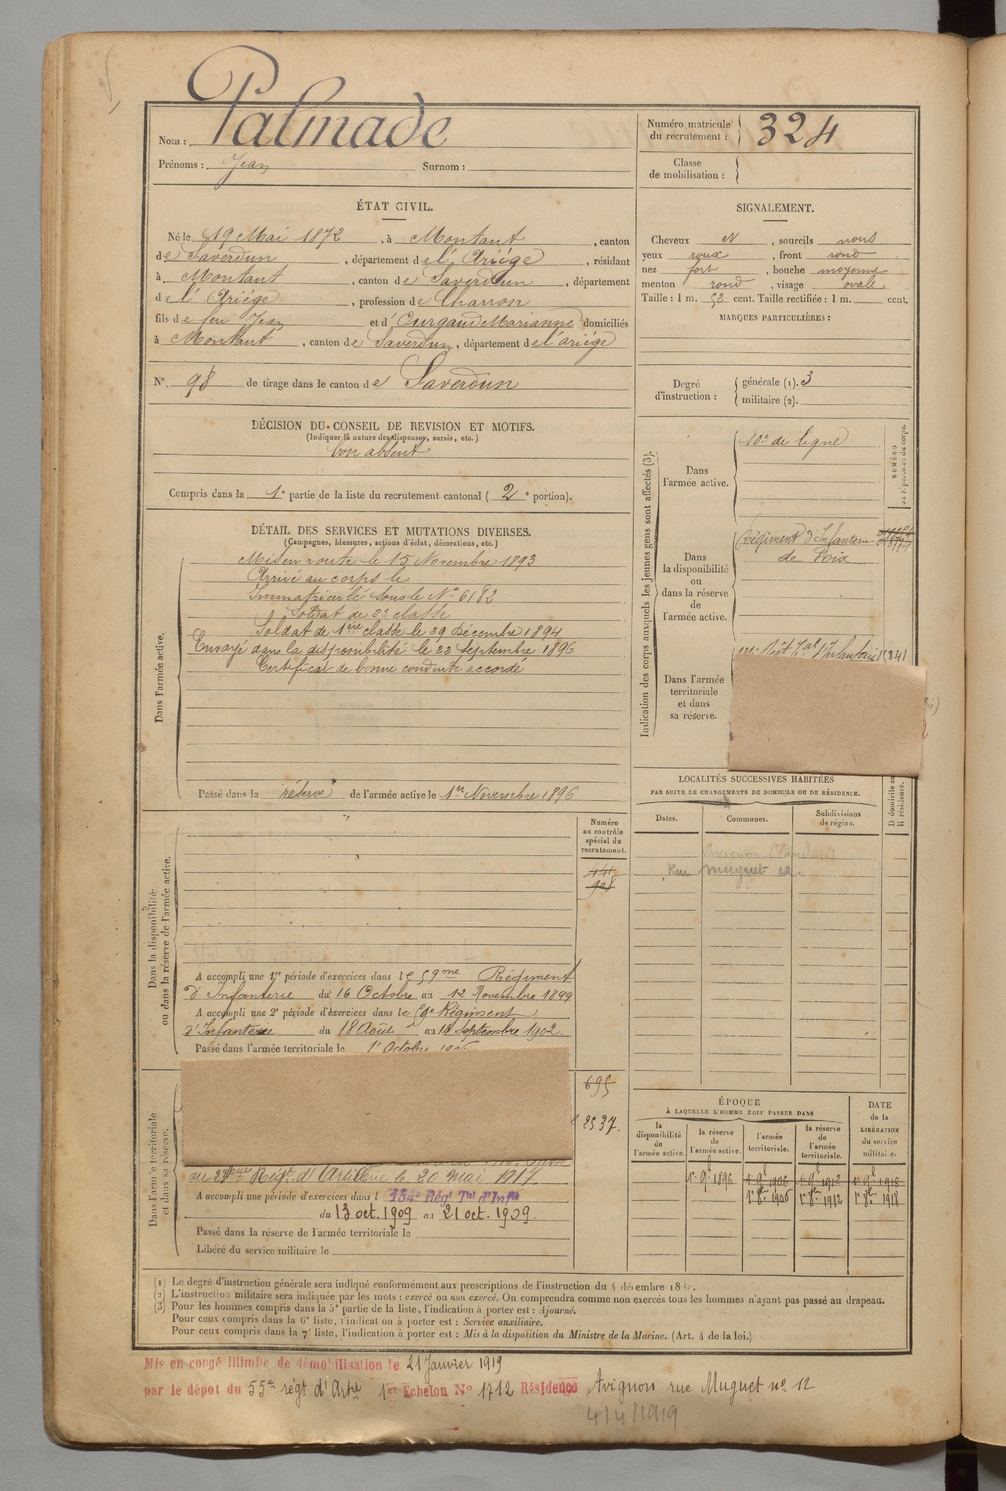 Nom : Palmade
Prénoms : Jean Surnom :
Numéro matricule du recrutement : 324
Classe de mobilisation :
ÉTAT CIVIL.
Né le 19 Mai 1872, à Montaut, canton
de Saverdun, département de l'Ariège, résidant
à Montaut, canton de Saverdun, département
de l'Ariège, profession de Charron
fils de feu Jean et d'Ourgaud Marianne domiciliés
à Montaut, canton de Saverdun, département de l'ariége
N° 98 de tirage dans le canton de Saverdun
SIGNALEMENT.
Cheveux N, sourcils noirs
yeux roux, front rond
nez fort, bouche moyenne
menton rond, visage ovale
Taille : 1 m. 52 cent. Taille rectifiée : 1 m. cent.
MARQUES PARTICULIÈRES :
Degré d'instruction : générale (1). 3
militaire (2).
DÉCISION DU CONSEIL DE REVISION ET MOTIFS.
(Indiquer la nature des dispenses, sursis, etc.)
bon absent
Compris dans la 1e partie de la liste du recrutement cantonal (2e portion).
DÉTAIL DES SERVICES ET MUTATIONS DIVERSES.
(Campagnes, blessures, actions d'éclat, décorations, etc.)
Dans l'armée active.
Mis en route le 15 Novembre 1893
Arrivé au corps le
Immatriculé sous le N° 6182
Soldat de 2e classe
Soldat de 1ère classe le 29 Décembre 1894
Envoyé dans la disponibilité le 22 Septembre 1896
Certificat de bonne conduite accordé
Passé dans la réserve de l'armée active le 1er Novembre 1896
Indication des corps auxquels les jeunes gens sont affectés (3).
Dans l'armée active.
10e de ligne
NUMÉRO
Dans la disponibilité ou dans la réserve de l'armée active.
Régiment d'Infanterie
de Foix
Dans l'armée territoriale et dans sa réserve.
LOCALITÉS SUCCESSIVES HABITÉES
PAR SUITE DE CHANGEMENTS DE DOMICILE OU DE RÉSIDENCE.
Dates. Communes. Subdivisions de région.
D domicile ou R résidence.
Avignon (Vaucluse)
Rue Muguet 12
Dans la disponibilité ou dans la réserve de l'armée active.
Numéro au contrôle spécial du recrutement.
A accompli une 1re période d'exercices dans le 59me Régiment
d'Infanterie du 16 Octobre au 12 Novembre 1899
A accompli une 2e période d'exercices dans le 59e Régiment
d'Infanterie du 18 Août au 14 septembre 1902
Passé dans l'armée territoriale le 1er Octobre
Dans l'armée territoriale et dans sa réserve.
695
2537
Régt. d'Artillerie le 20 mai 1917
A accompli une période d'exercices dans l 134e Régt Tal d'Infie
du 13 oct. 1909 au 21 oct. 1909.
Passé dans la réserve de l'armée territoriale le
Libéré du service militaire le
ÉPOQUE
À LAQUELLE L'HOMME DOIT PASSER DANS
la disponibilité de l'armée active.
la réserve de l'armée active.
l'armée territoriale.
la réserve de l'armée territoriale.
DATE de la LIBÉRATION du service militaire.
1er 9bre 1896 1er 9bre 1906 1er 9bre 1912 1er 9bre 1918
1er 8bre 1906 1er 8bre 1912 1er 8bre 1918
(1) Le degré d'instruction générale sera indiqué conformément aux prescriptions de l'instruction du 4 décembre 18
(2) L'instruction militaire sera indiquée par les mots : exercé ou non exercé. On comprendra comme non exercés tous les hommes n'ayant pas passé au drapeau.
(3) Pour les hommes compris dans la 5e partie de la liste, l'indication à porter est : Ajourné.
Pour ceux compris dans la 6e liste, l'indication à porter est : Service auxiliaire.
Pour ceux compris dans la 7e liste, l'indication à porter est : Mis à la disposition du Ministre de la Marine. (Art. 4 de la loi.)
Mis en congé illimité de démobilisation le 21 Janvier 1919
par le dépôt du 55e régt d'Artie 1er Echelon N° 1712 Résidence Avignon rue Muguet n° 12
4/4/1919